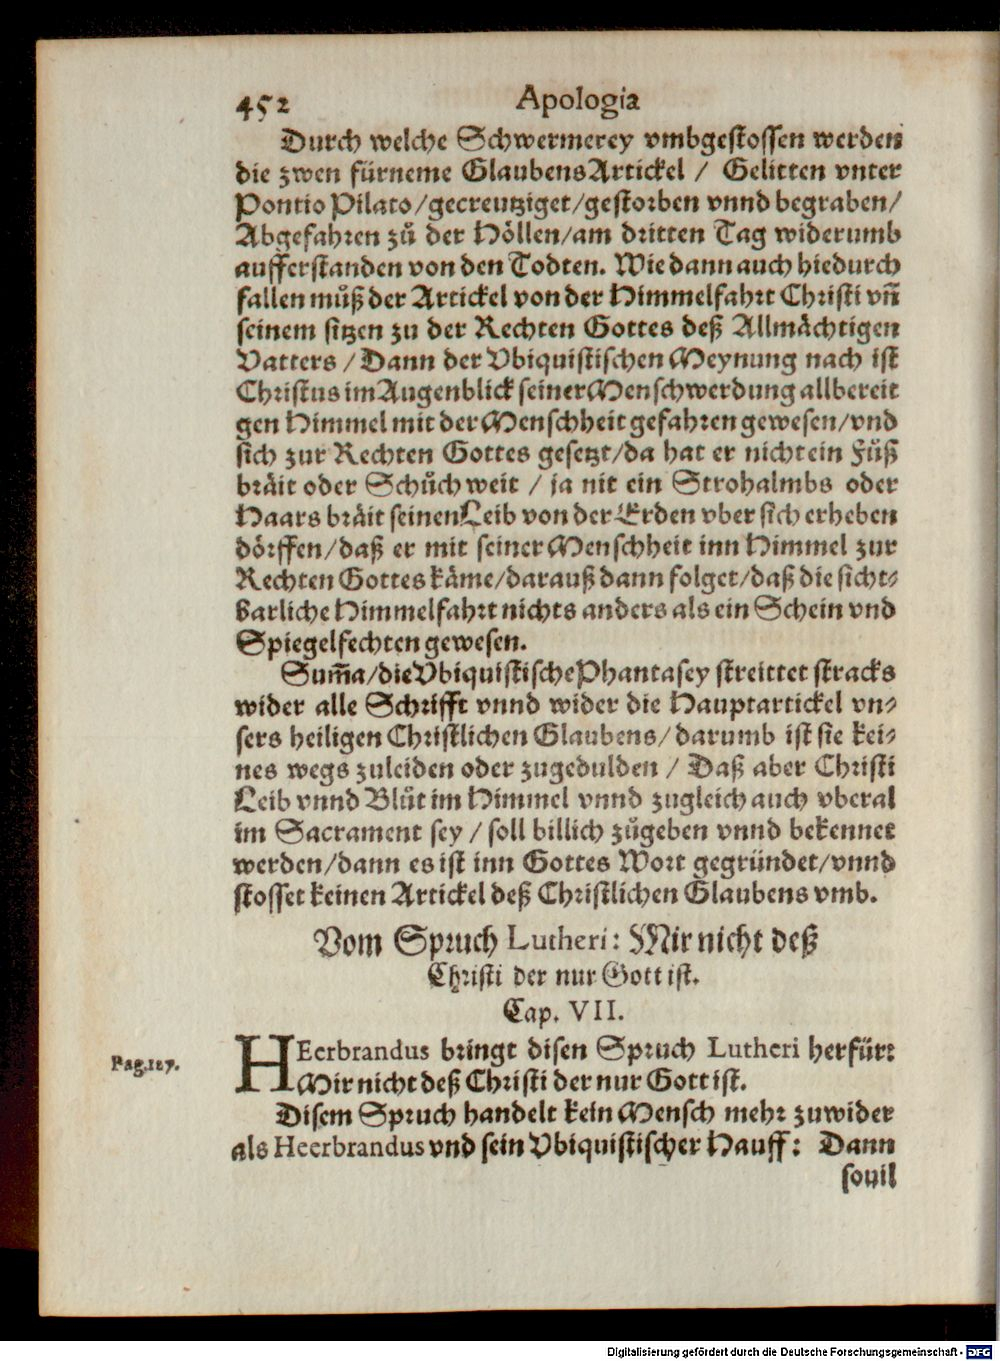 452 Apologia
Durch welche Schwermerey vmbgestossen werden
die zwen fürneme GlaubensArtickel / Gelitten vnter
Pontio Pilato/gecreutziget/gestorben vnnd begraben/
Abgefahren zů der Höllen/am dritten Tag widerumb
aufferstanden von den Todten. Wie dann auch hiedurch
fallen můß der Artickel von der Himmelfahrt Christi vñ
seinem sitzen zu der Rechten Gottes deß Allmächtigen
Vatters / Dann der Vbiquistischen Meynung nach ist
Christus im Augenblick seiner Menschwerdung allbereit
gen Himmel mit der Menschheit gefahren gewesen/vnd
sich zur Rechten Gottes gesetzt/da hat er nicht ein Fůß
bräit oder Schůch weit / ja nit ein Strohalmbs oder
Haars bräit seinen Leib von der Erden vber sich erheben
dörffen/daß er mit seiner Menschheit inn Himmel zur
Rechten Gottes käme/darauß dann folget/daß die sicht-
barliche Himmelfahrt nichts anders als ein Schein vnd
Spiegelfechten gewesen.
Sum̃a/die Vbiquistische Phantasey streittet stracks
wider alle Schrifft vnnd wider die Hauptartickel vn-
sers heiligen Christlichen Glaubens/darumb ist sie kei-
nes wegs zuleiden oder zugedulden / Daß aber Christi
Leib vnnd Blůt im Himmel vnnd zugleich auch vberal
im Sacrament sey / soll billich zůgeben vnnd bekennet
werden/dann es ist inn Gottes Wort gegründet/vnnd
stosset keinen Artickel deß Christlichen Glaubens vmb.
Vom Spruch Lutheri: Mir nicht deß
Christi der nur Gott ist.
Cap. VII.
HEerbrandus bringt disen Spruch Lutheri herfür:
Pag.127.
Mir nicht deß Christi der nur Gott ist.
Disem Spruch handelt kein Mensch mehr zuwider
als Heerbrandus vnd sein Vbiquistischer Hauff: Dann
souil
Digitalisierung gefördert durch die Deutsche Forschungsgemeinschaft - DFG